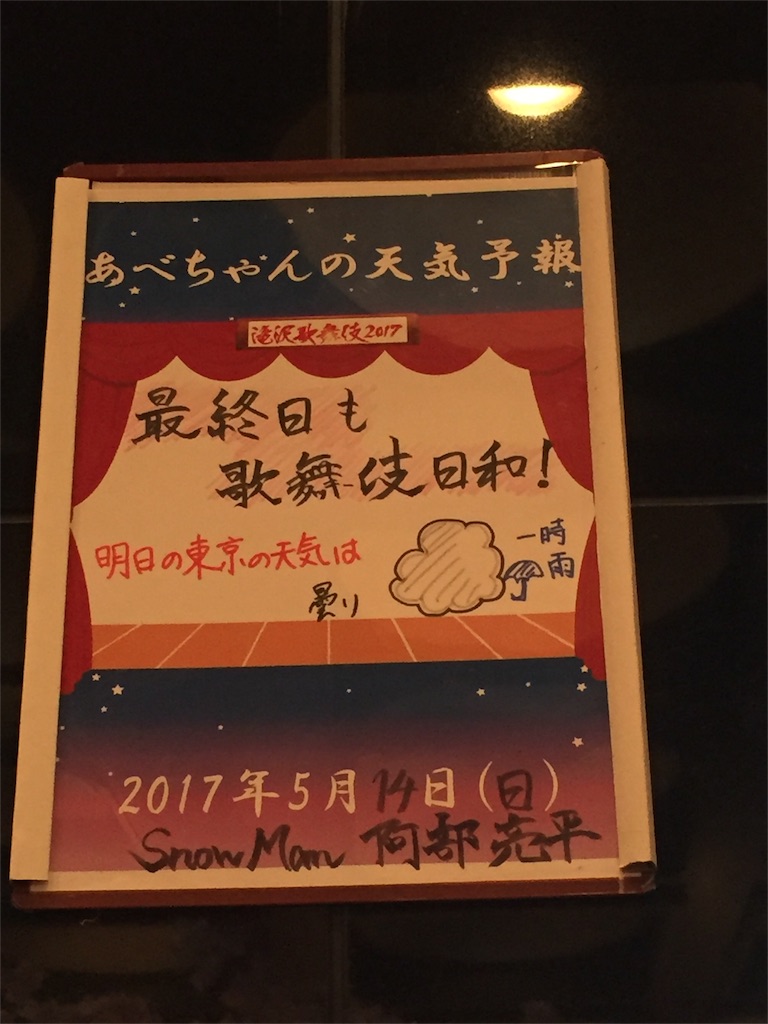 あべちゃんの天気予報
滝沢歌舞伎2017
最終日も
歌舞伎日和!
明日の東京の天気は
曇り
一時
雨
2017年5月14日(日)
Snow Man 阿部亮平